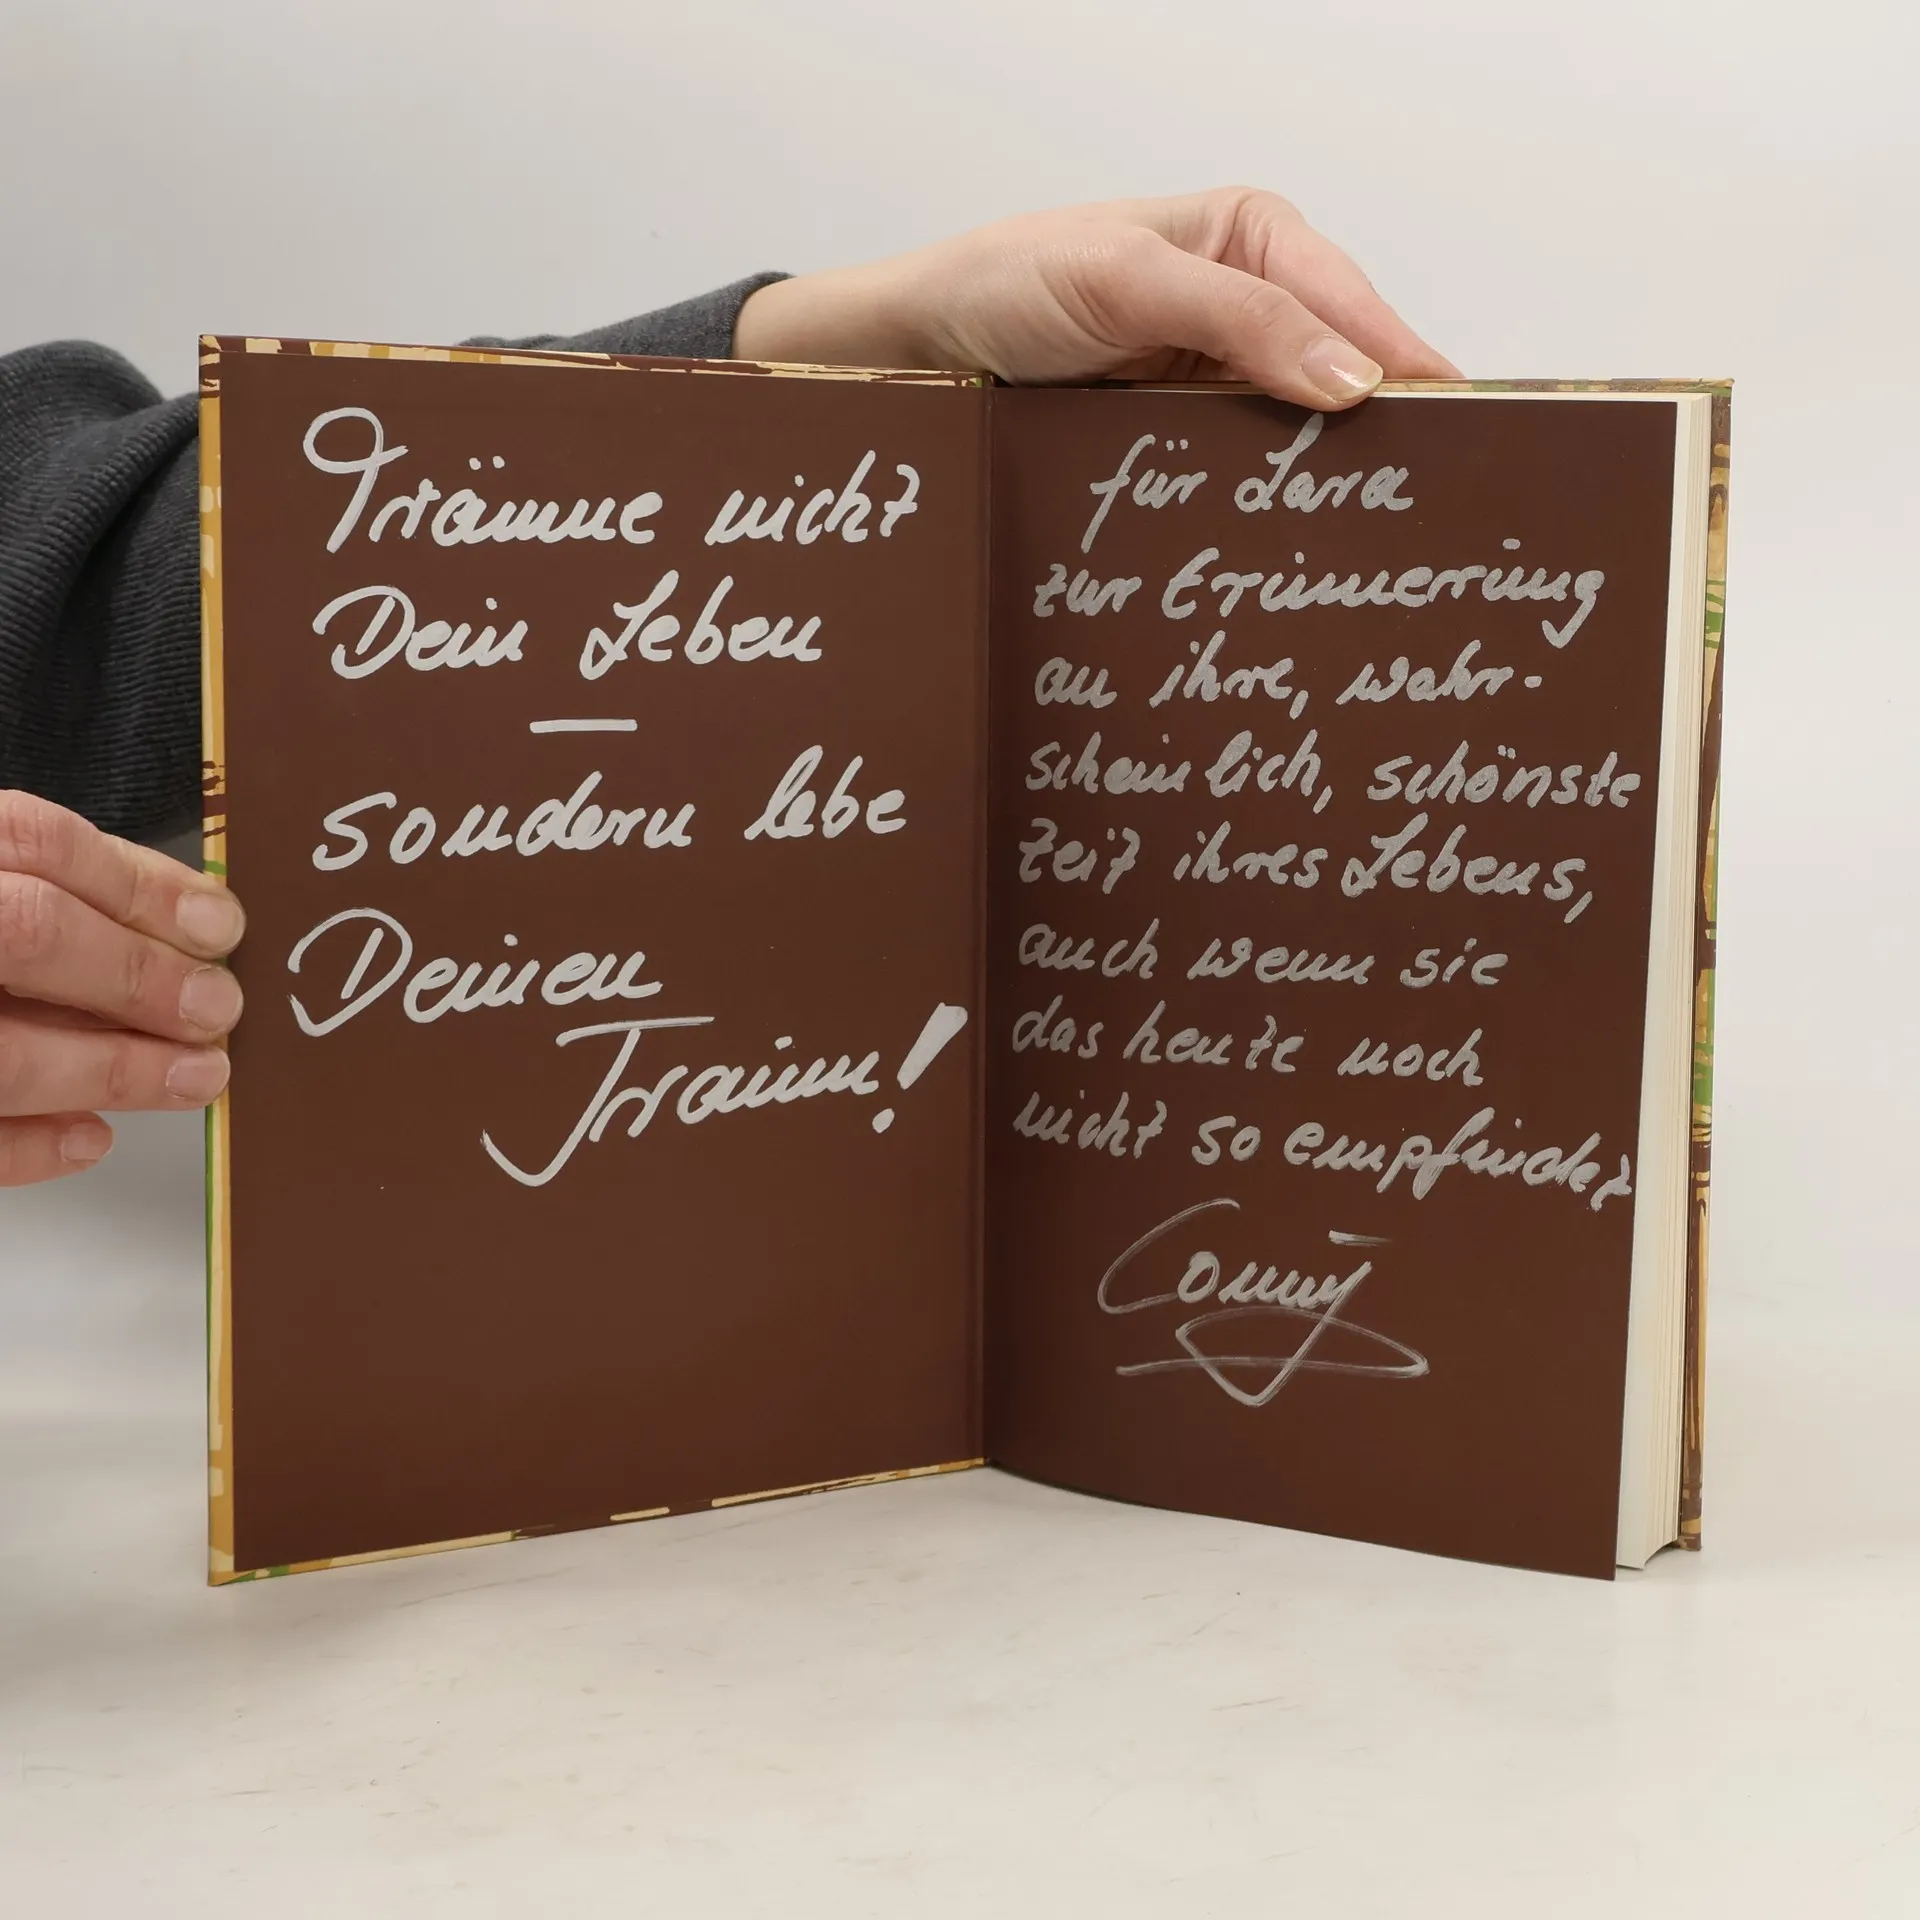 Träume nicht
Dein Leben
—
sondern lebe
Deinen
Traum!
für Lara
zur Erinnerung
an ihre, wahr-
scheinlich, schönste
Zeit ihres Lebens,
auch wenn sie
das heute noch
nicht so empfindet
Conny